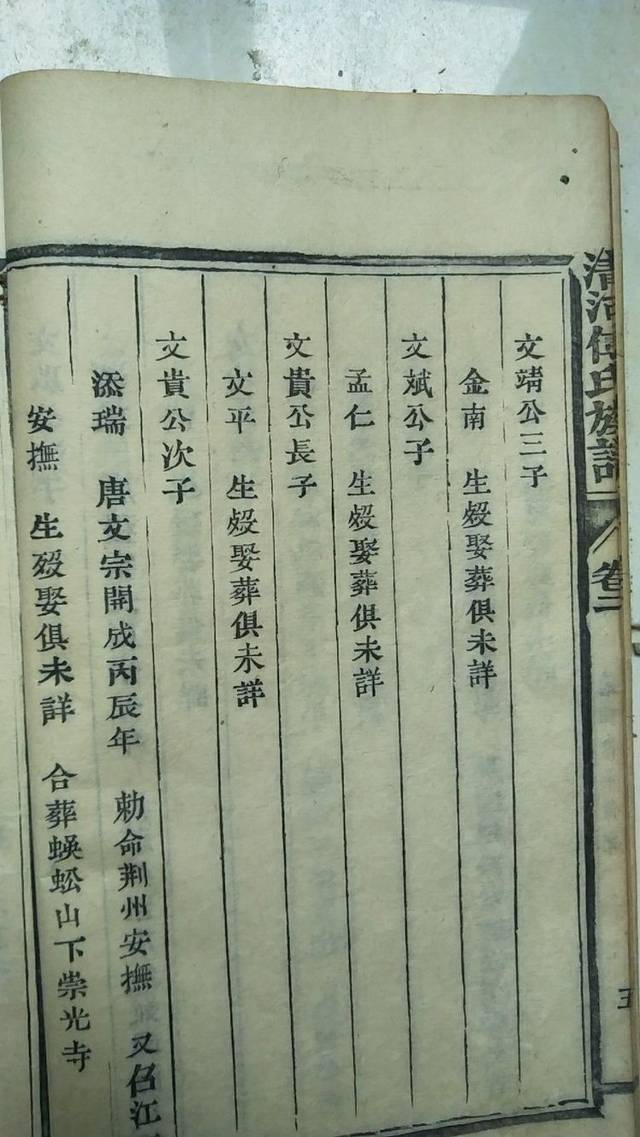 清河傅氏族譜 卷二 五
文靖公三子
金南 生殁娶葬俱未詳
文斌公子
孟仁 生殁娶葬俱未詳
文貴公長子
文平 生殁娶葬俱未詳
文貴公次子
添瑞 唐文宗開成丙辰年 勅命荆州安撫 又召江
安撫 生殁娶俱未詳 合葬蜈蚣山下崇光寺